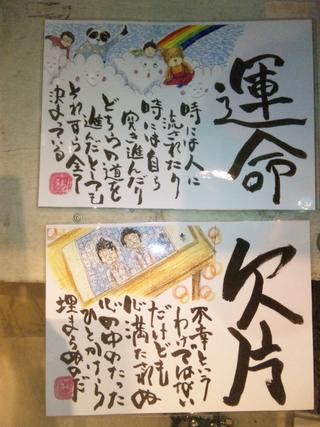 運命
時には人に
流されたり
時には自ら
突き進んだり
どちらの道を
進んだとしても
それすら全て
決まっている
欠片
不幸という
わけではない
だけども
心満たされぬ
心の中のたった
ひとかけら
埋まらぬのだ